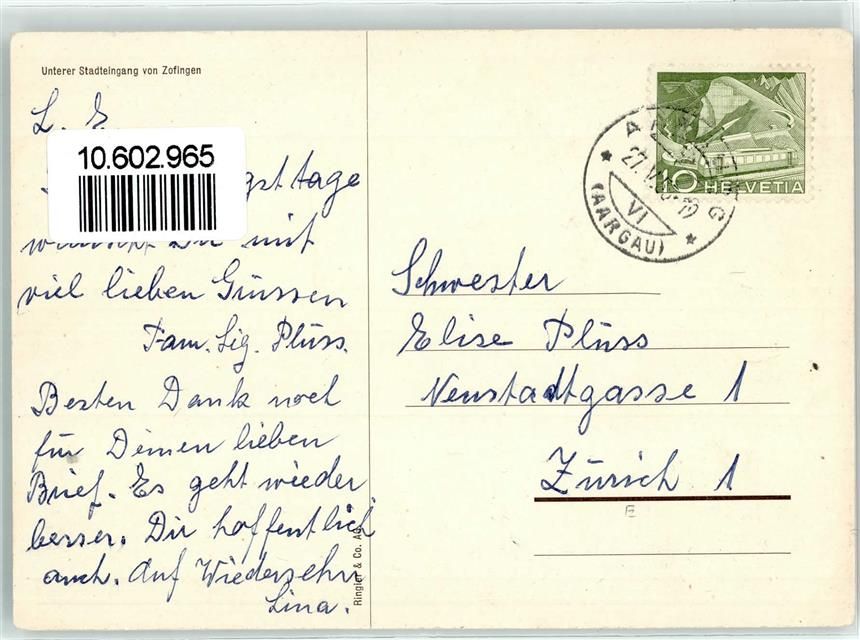 Unterer Stadteingang von Zofingen
L. E.
10.602.965
gsttage
wünscht Dir mit
viel lieben Grüssen
Fam. Sig. Plüss.
Besten Dank noch
für Deinen lieben
Brief. Es geht wieder
besser. Dir hoffentlich
auch. Auf Wiedersehn
Lina.
Ringier & Co. AG.
10 HELVETIA
27. V
VI
(AARGAU)
Schwester
Elise Plüss
Neustadtgasse 1
Zürich 1
E